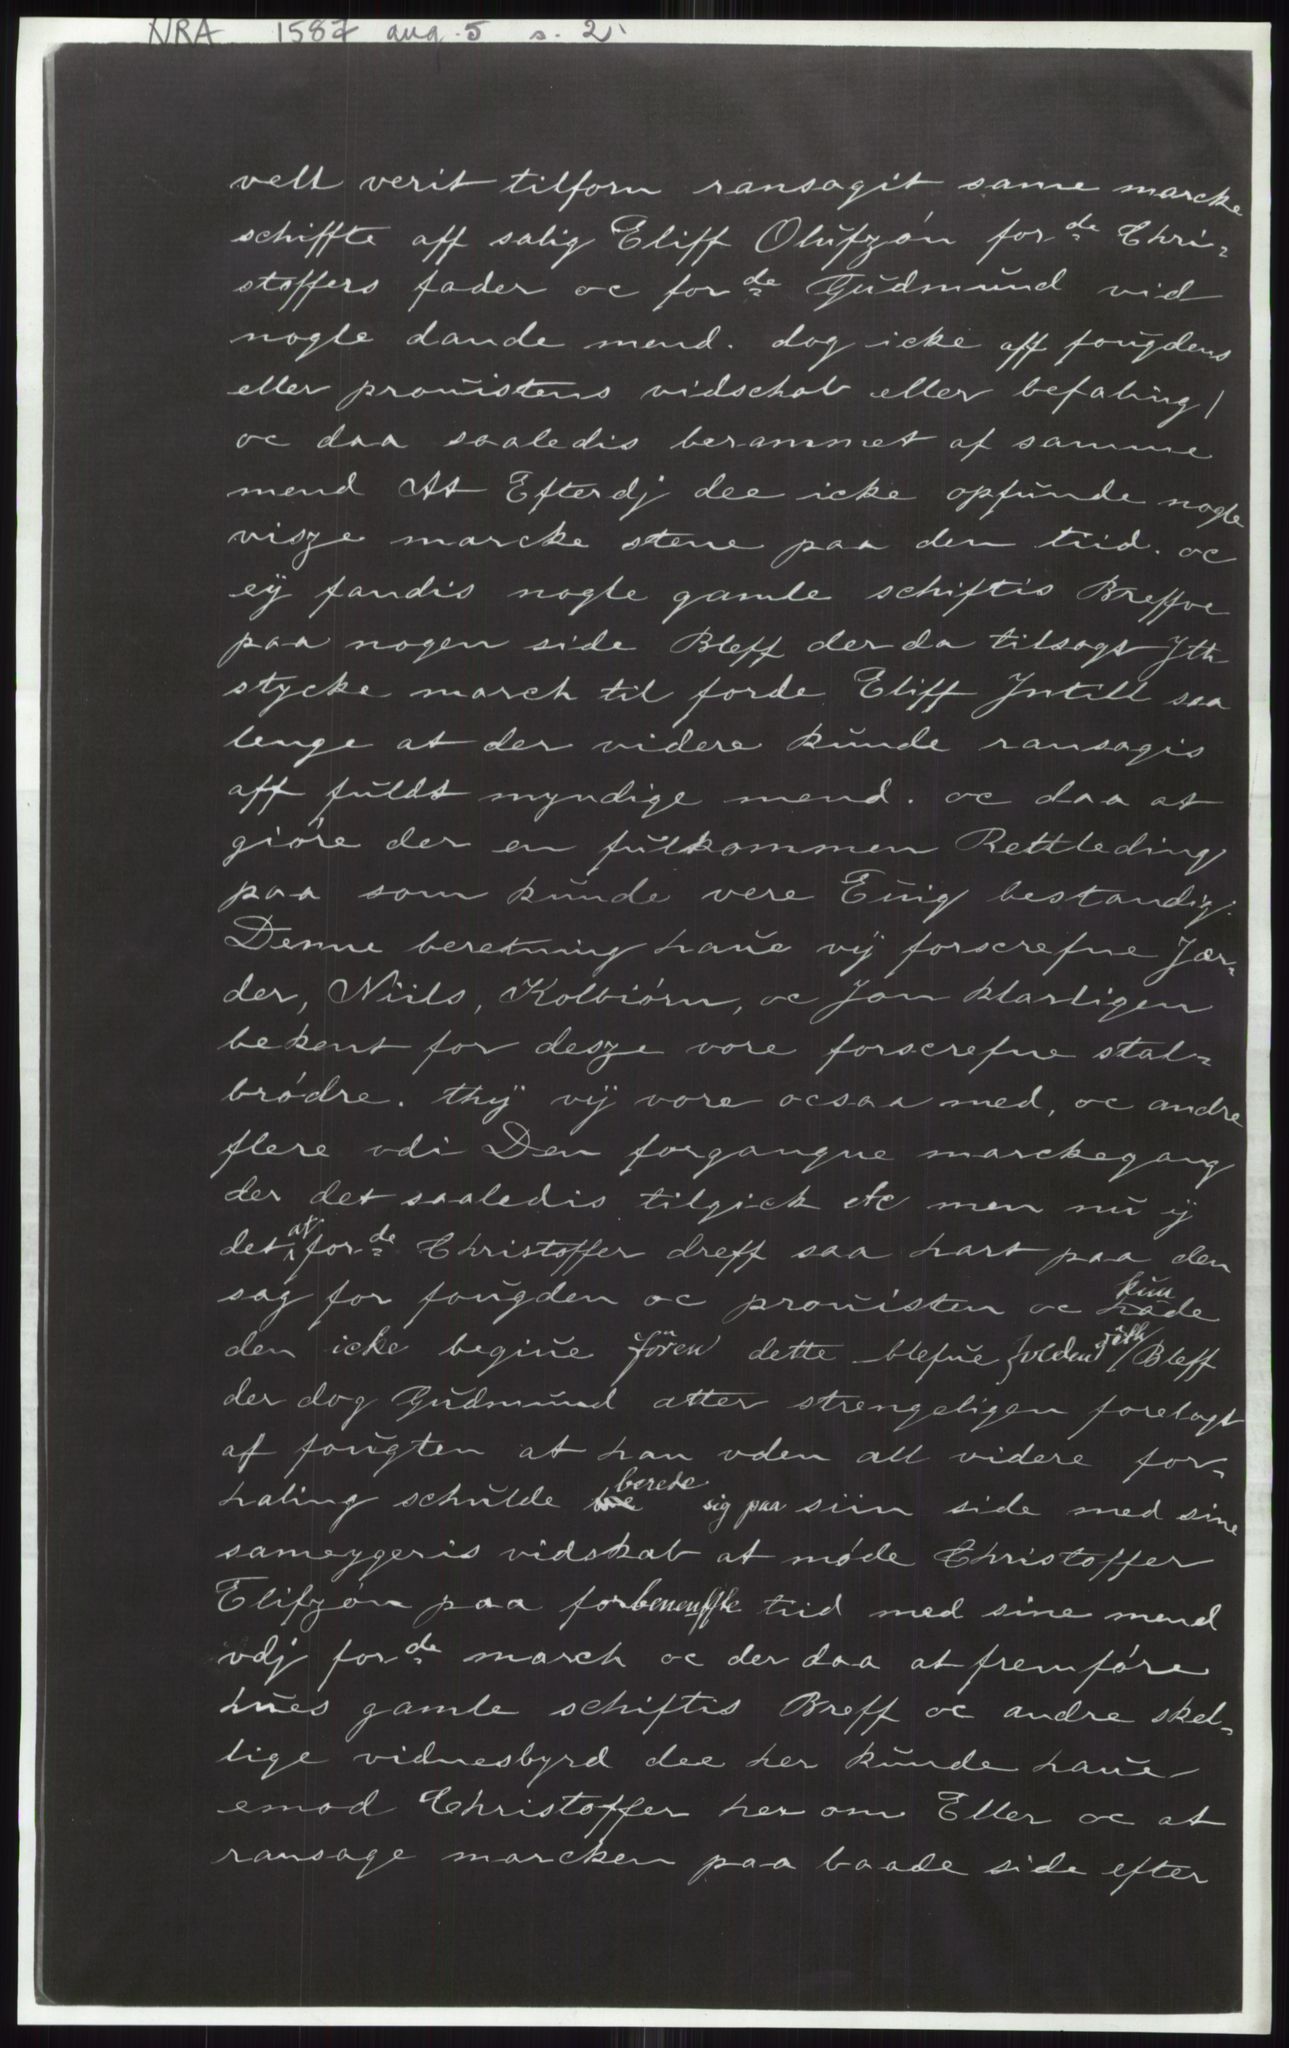 NRA 1587 aug. 5 s. 2.
velt verit tilforn ransagit same marcke
schiffte aff salig Eliff Olufzøn for de Chri-
stoffers fader oc for de Gudmund vid
nogle dande mend. dog icke aff fougdens
eller prouistens vidschab eller befaling /
oc daa saaledis berammet af samme
mend At Efterdj dee icke opfunde nogle
visze marcke stene paa den tiid. oc
eÿ fandis nogle gamle schiftis Breffve
paa nogen side Bleff der da tilsagt Jth
stycke march til forde Eliff Jntill saa
lenge at der videre kunde ransagis
aff fuldt myndige mend. oc daa at
giøre der en fulkommen Rettleding
paa som kunde vere Euig bestandig.
Denne beretning haue vij forscrefne Jær-
der, Niils, Kolbiørn, oc Jon klarligen
bekent for desze vore forscrefne stal-
brødre. thÿ vÿ vore ocsaa med, oc andre
flere vdi Den forgangne marckegang
der det saaledis tilgick etc men nu ij
det at for de Christoffer dreff saa hart paa den
sag for fougden oc prouisten oc kun hade
den icke begiue føren dette blefue Bleff
der dog Gudmund atter strengeligen forelagt
af fougten at han vden all videre for-
haling schulde berede sig paa siin side med sine
sameygeris vidskab at møde Christoffer
Elifzøn paa forbeneffte tiid med sine mend
vdj for de march oc der daa at fremføre
hues gamle schiftis Breff oc andre skel-
lige vidnesbyrd dee her kunde haue
emod Christoffer her om Eller oc at
ransage marcken paa baade side efter